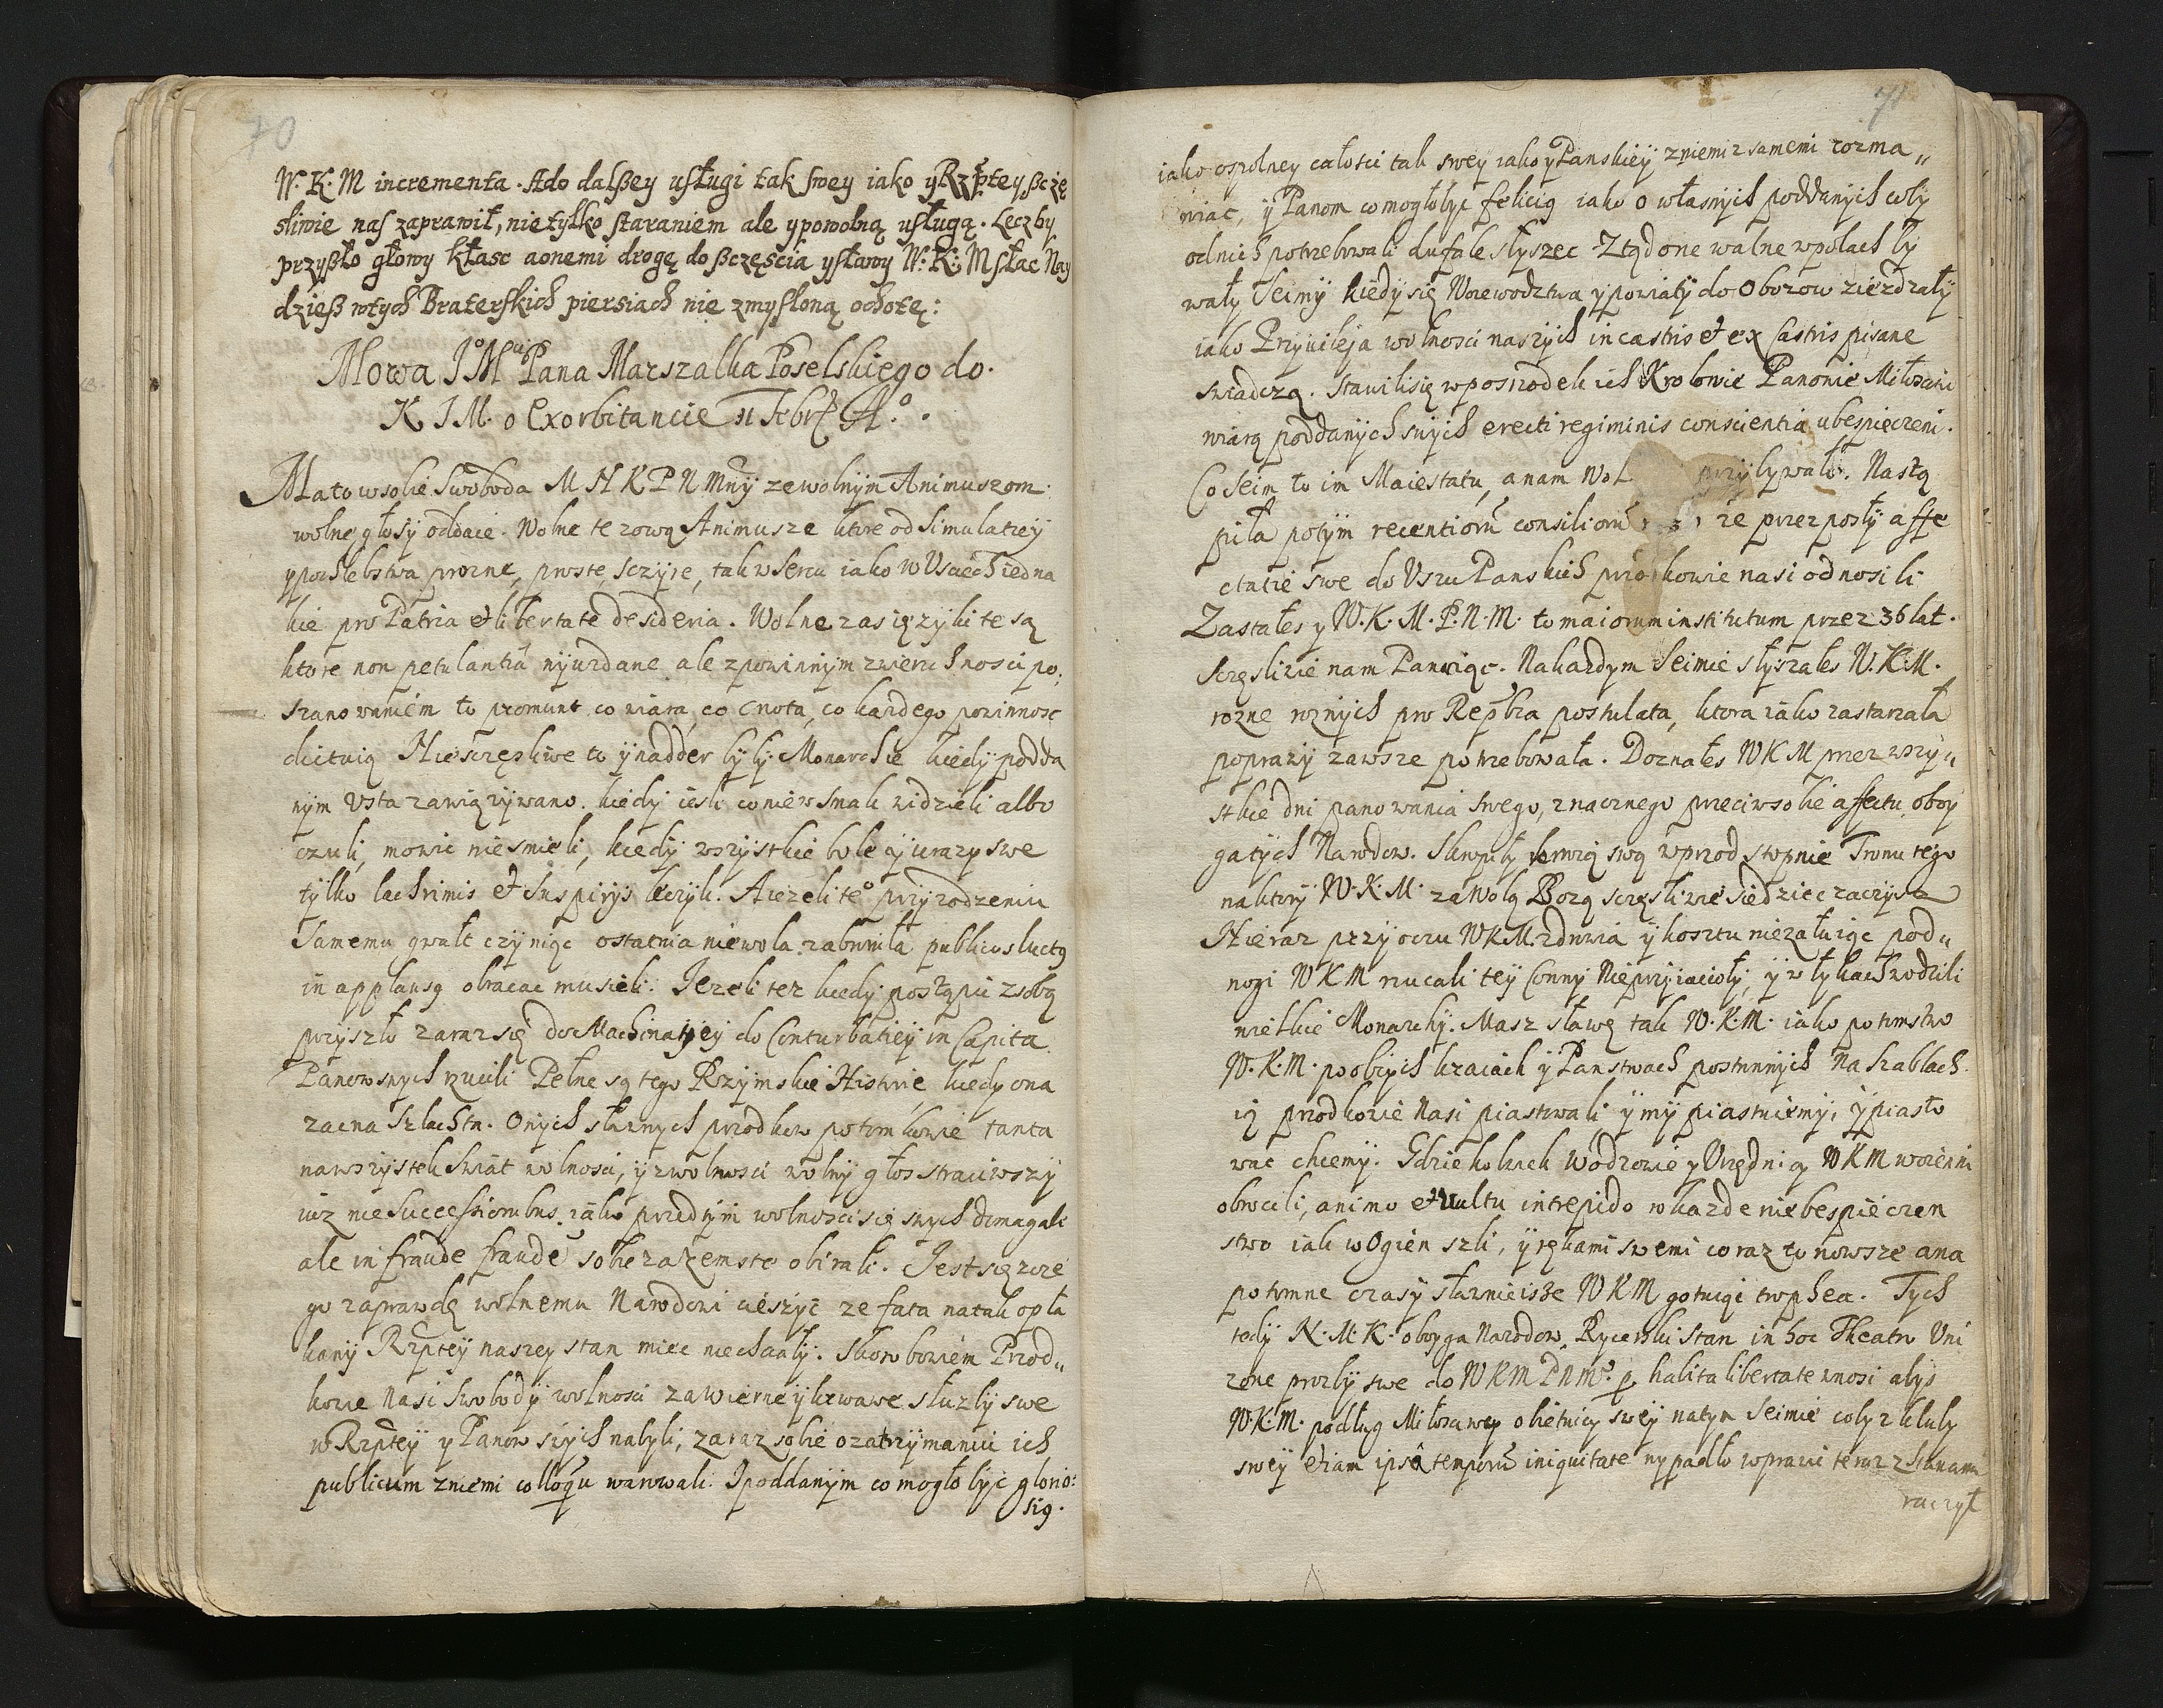 70
W. K. M incrementa. Ado dalßey usługi tak swey iako y Rzptey ßczę
sliwie nas zaprawił, nie tylko staraniem ale y powolną usługą. Leczby
przyßło głowy kłasc aonemi drogę do ßczęscia y sławy W: K: M słac Nay
dzieß wtych Braterskich piersiach nie zmysloną ochotę:
Mowa Jº Mci Pana Marszalka Poselskiego do.
K J M. o Exorbitancie 11 Febr Aº.
Ma to wsobie Swoboda M N K P N Mny ze wolnym Animuszom
wolne głosy oddaie. Wolne te zową Animusze ktore od Simulatiey
y pochlebstwa prozne, proste, sczyre, tak w sercu iako w Usciech iedna
kie pro Patria et libertate desideria. Wolne zas ięzyki te są
ktore non petulantia wyuzdane ale z powinnym zwierchnosci po,
szanowaniem to promunt co wiara, co cnota, co kazdego powinnosc
dictuią Niesczęsliwe to y nadder były Monarchie kiedy podda
nym Usta zawięzywano. kiedy iesli co niewsmak widzieli albo
czuli, mowic nie smieli, kiedy wszystkie bole y urazy swe
tylko lachrimis et suspirys leczyli. A iezeli teº przyrodzeniu
Samemu gwałt czyniąc ostatnia niewola zabroniła publicos luctus
in applausus obracac musieli. Jezeli tez kiedy postąpic z sobą
przyszło zaraz się do Machinatyey do Conturbatiey in Capita
Panow swych rzucili Pełne są tego Rzymskie Historie, kiedy ona
zacna Szlachta. Onych sławnych przodkow potomkowie tanta
nawszystek swiat wolnosci, y zwolnosci wolny głos straciwszy
iuz nie Successioribus iako przedtym wolnosci się swych domagali
ale in fraude fraude sobie za zemste obirali. Jest się z cze
go zaprawdę wolnemu Narodowi cieszyc ze fata natak opła
kany Rzptey naszey stan miec niechciały. Skoro bowiem Przod„
kowie Nasi Swobody wolnosci zawierne y krwawe służby swe
w Rzptey y Panow swych nabyli, zaraz sobie o zatrzymaniu ich
publicum z niemi colloqu warowali. I poddanym co mogło być glorio:
sig.
71
iako ospolney całosci tak swey iako y Panskiey z niemi z samemi rozma„
wiac, y Panom co mogło byc felicig iako o własnych poddanych coby
odnich potrzebowali dufale słyszec Ztąd one walne wpolach by
wały Seimy kiedy się Woiewodztwa y powiaty do Obozow ziezdzały
iako Przywileja wolnosci naszych in castris et ex Castris pisane
swiadczą. Stawili się wposrzodek ich Krolowie Panowie Miłosciwi
wiarą poddanych swych erecti regiminis conscientia ubespieczeni.
Co Seim to im Maiestatu, a nam Wol przybywało. Nastą
piła potym recentiorū consiliorū ze przez posły affe
ctatie swe do Uszu Panskich przodkowie nasi odnosili
Zastałes y W. K. M. P. N. M. to maiorum institutum przez 36 lat.
Sczęsliwie nam Panuiąc. Nakazdym Seimie słyszałes W. K. M.
rozne roznych pro Repbca postulata, ktora iako zastarzała
poprawy zawsze potrzebowała. Doznałes W K M przez wszy„
stkie dni panowania swego, znacznego przeciw sobie affectu oboy
ga tych Narodow. Skropiły krwią swą wprzod stopnie Tronu tego
naktory W. K. M. za Wolą Bozą sczęsliwie siedziec raczysz
Nie raz przy oczu W K M. zdrowia y kosztu niezałuiąc pod„
nogi W K M rzucali tey Corony Nieprzyiacioły, y w łykach wodzili
wielkie Monarchy. Masz sławę tak W. K. M. iako potomstwo
W. K. M. po obcych kraiach y Panstwach postronnych Na szablach
ią przodkowie Nasi piastowali y my piastuiemy, y piasto
wac chcemy. Gdziekolwiek Wodzowie y Urzędnicy W K M woienni
obrocili, animo et vultu intrepido w kazde niebespieczen
stwo iak w Ogien szli, y rękami swemi coraz to nowsze ana
potomne czasy sławnieisze W K M gotuiąc trophea. Tych
tedy N. M. K. oboyga Narodow Rycerski Stan in hoc Theatro Uni
zone prozby swe do W K M P N Mº. p halita libertate wnosi abys
W. K. M. podług Miłosciwey obietnicy swey natym Seimie coby z kluby
swey etiam ipsa temporū iniquitate wypadło wprawic teraz z Stanami
raczył